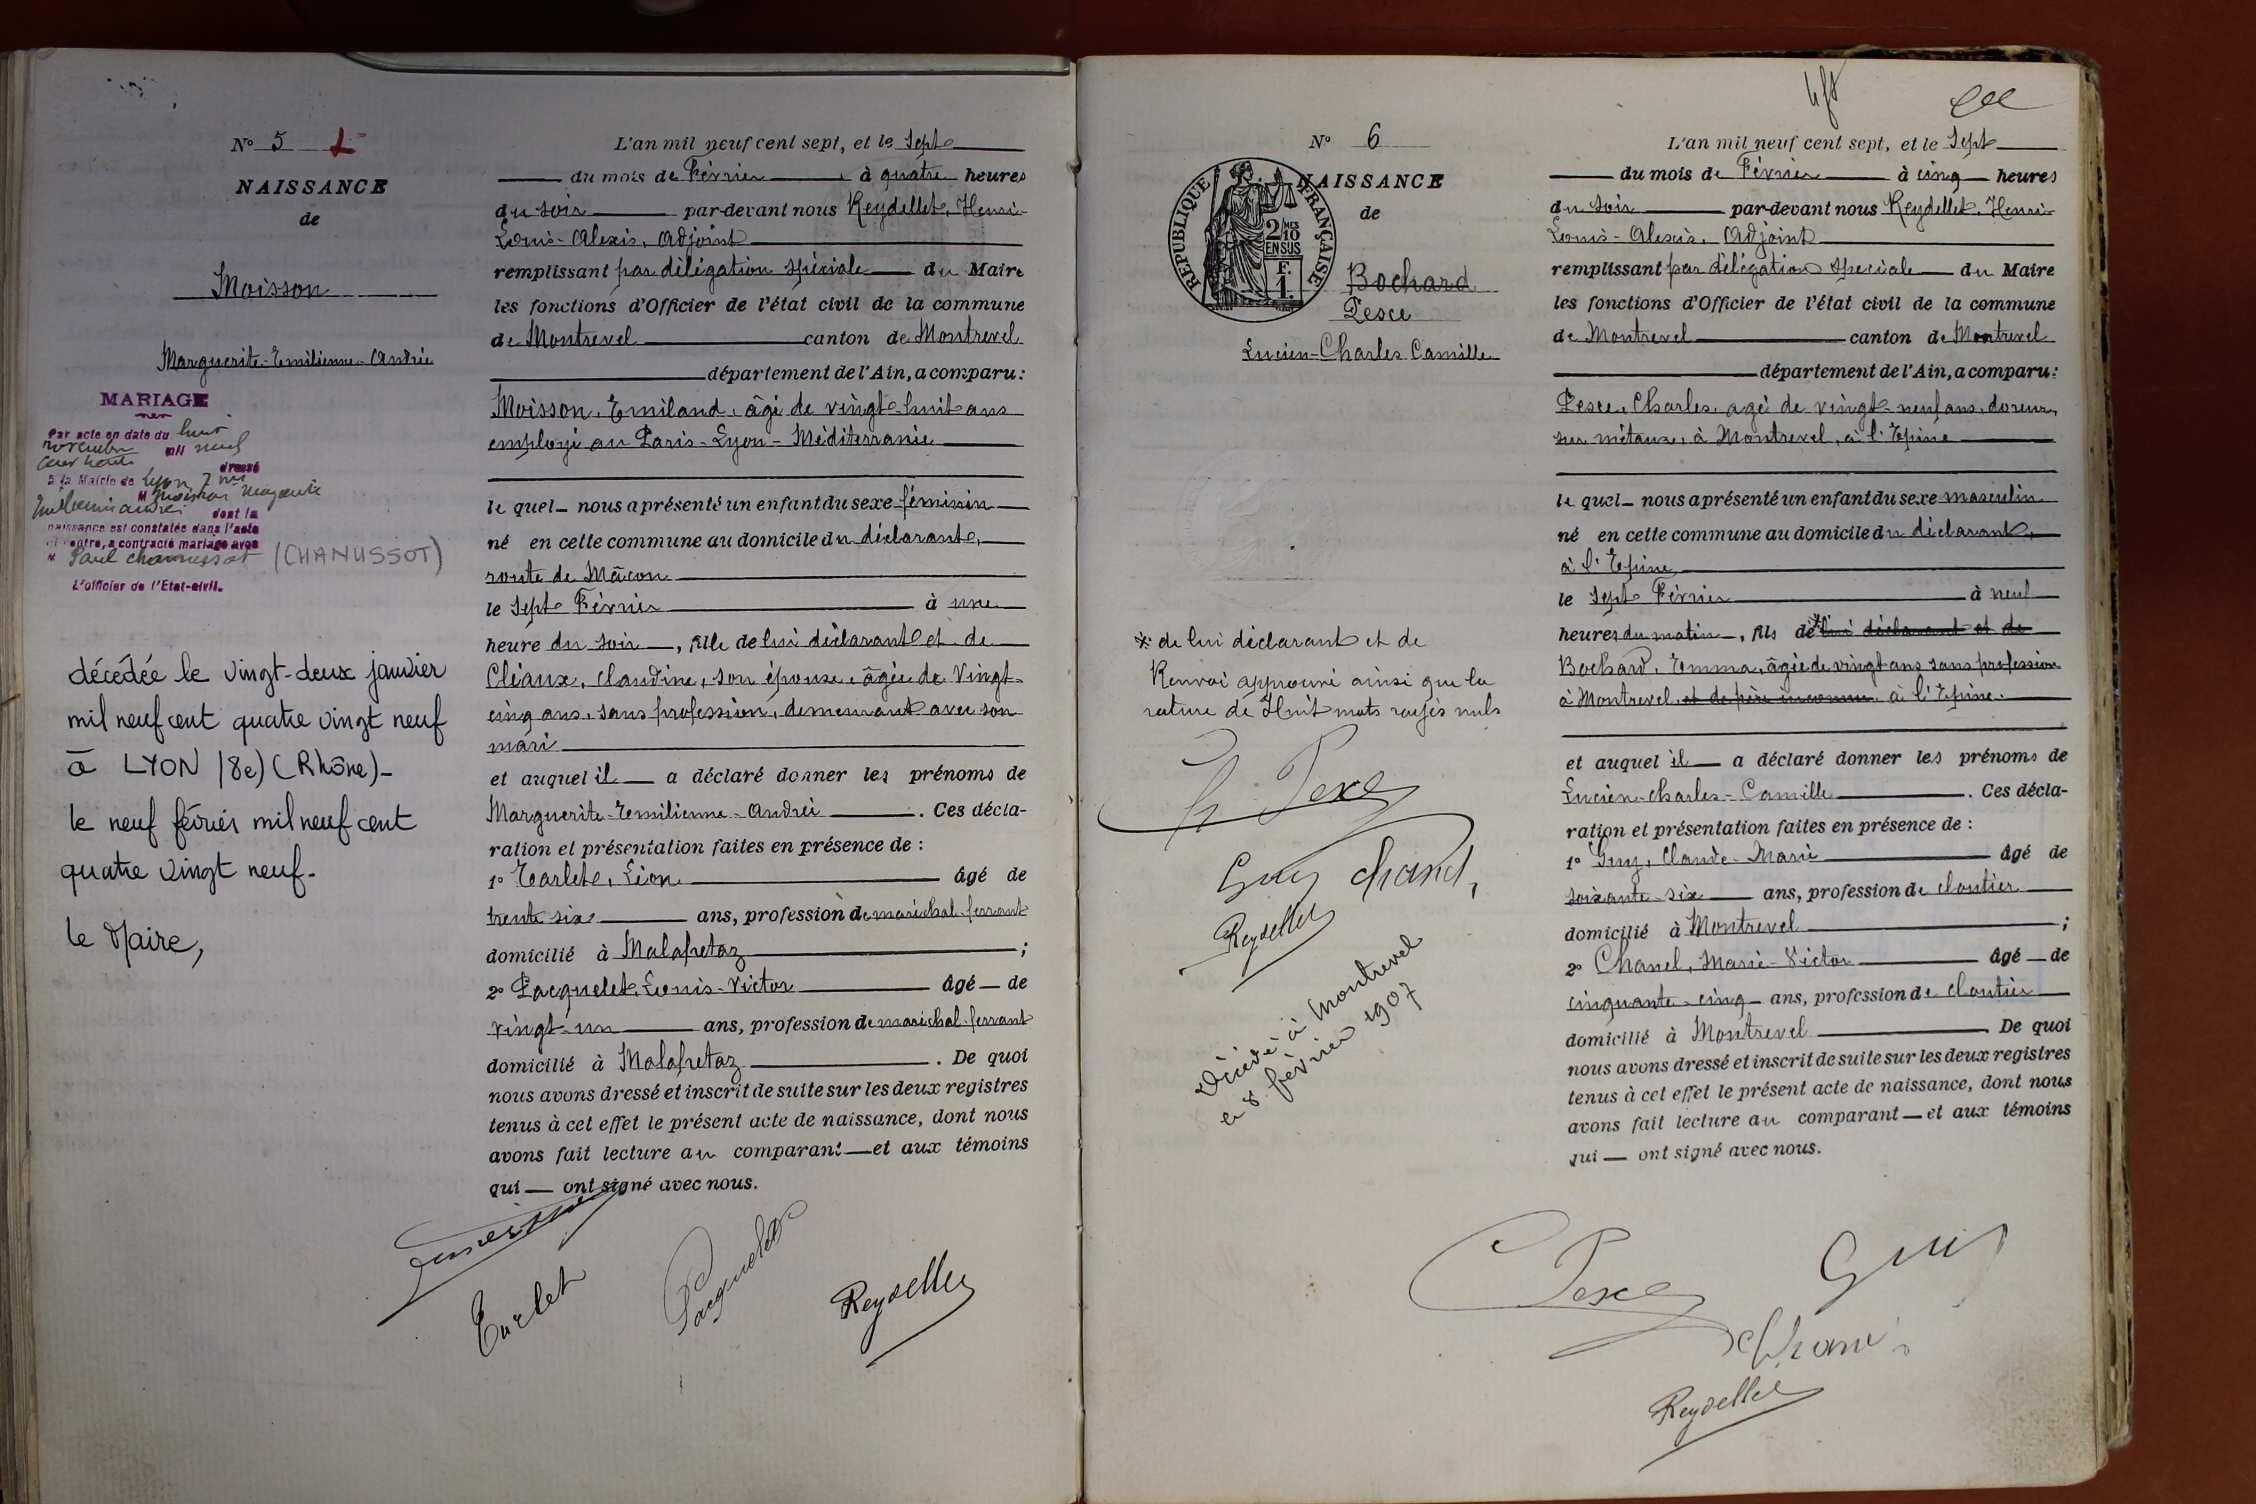 N° 5
NAISSANCE
de
Moisson
Marguerite-Emilienne-Andrée
MARIAGE
Par acte en date du huit
novembre mil neuf
cent trente dressé
à la Mairie de Lyon 7me
M Moisson Marguerite
Emilienne Andrée dont la
naissance est constatée dans l'acte
ci-contre, a contracté mariage avec
M Paul Chanussot (CHANUSSOT)
L'officier de l'Etat-civil.
décédée le vingt-deux janvier
mil neuf cent quatre vingt neuf
à LYON (8e) (Rhône)-
le neuf février mil neuf cent
quatre vingt neuf.
le Maire,
L'an mil neuf cent sept, et le sept
du mois de Février, à quatre heures
du soir par-devant nous Reydellet, Henri-
Louis-Alexis, Adjoint
remplissant par délégation spéciale du Maire
les fonctions d'Officier de l'état civil de la commune
de Montrevel canton de Montrevel
département de l'Ain, a comparu:
Moisson, Emiland, âgé de vingt-huit ans
employé au Paris-Lyon-Méditerranée
le quel nous a présenté un enfant du sexe féminin
né en cette commune au domicile du déclarant,
route de Mâcon
le sept Février à une
heure du soir, fille de lui déclarant et de
Cléaux, Claudine, son épouse, âgée de vingt-
cinq ans, sans profession, demeurant avec son
mari
et auquel il a déclaré donner les prénoms de
Marguerite-Emilienne-Andrée. Ces décla-
ration et présentation faites en présence de :
1° Tarlet, Léon âgé de
trente six ans, profession de maréchal-ferrant
domicilié à Malafretaz ;
2° Pacquelet, Louis-Victor âgé de
vingt-un ans, profession de maréchal-ferrant
domicilié à Malafretaz. De quoi
nous avons dressé et inscrit de suite sur les deux registres
tenus à cet effet le présent acte de naissance, dont nous
avons fait lecture au comparant et aux témoins
qui ont signé avec nous.
Pacquelet
Reydellet
N° 6
NAISSANCE
de
RÉPUBLIQUE FRANÇAISE
2/10 MES
EN SUS
F.
1.
Bochard
Pesce
Lucien-Charles-Camille
* de lui déclarant et de
Renvoi approuvé ainsi que la
rature de Huit mots rayés nuls
Ch Pesce
Guy Chanel,
Reydellet
Décédé à Montrevel
le 8 février 1907
L'an mil neuf cent sept, et le sept
du mois de Février à cinq heures
du soir par-devant nous Reydellet, Henri-
Louis-Alexis, Adjoint
remplissant par délégation spéciale du Maire
les fonctions d'Officier de l'état civil de la commune
de Montrevel canton de Montrevel
département de l'Ain, a comparu:
Pesce, Charles, agé de vingt-neuf ans, doreur
sur métaux, à Montrevel, à l'Epine
le quel nous a présenté un enfant du sexe masculin
né en cette commune au domicile du déclarant,
à l'Epine
le sept Février à neuf
heures du matin, fils de * lui déclarant et de
Bochard, Emma, âgée de vingt ans sans profession
à Montrevel, et de père inconnu à l'Epine.
et auquel il a déclaré donner les prénoms de
Lucien-Charles-Camille. Ces décla-
ration et présentation faites en présence de :
1° Guy, Claude-Marie âgé de
soixante-six ans, profession de cloutier
domicilié à Montrevel ;
2° Chanel, Marie-Victor âgé de
cinquante-cinq ans, profession de cloutier
domicilié à Montrevel. De quoi
nous avons dressé et inscrit de suite sur les deux registres
tenus à cet effet le présent acte de naissance, dont nous
avons fait lecture au comparant et aux témoins
qui ont signé avec nous.
C Pesce
Guy
Chanel
Reydellet